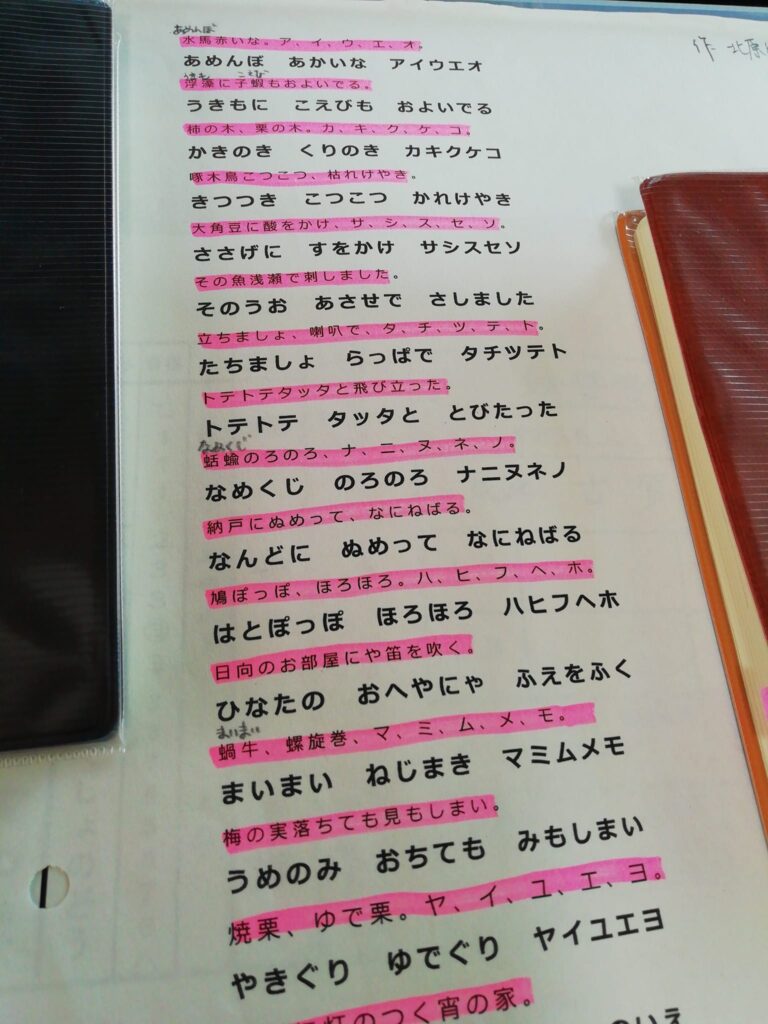 作 北原
あめんぼ
水馬赤いな。ア、イ、ウ、エ、オ。
あめんぼ あかいな アイウエオ
うきも こえび
浮藻に子蝦もおよいでる。
うきもに こえびも およいでる
柿の木、栗の木。カ、キ、ク、ケ、コ。
かきのき くりのき カキクケコ
啄木鳥こつこつ、枯れけやき。
きつつき こつこつ かれけやき
大角豆に酸をかけ、サ、シ、ス、セ、ソ。
ささげに すをかけ サシスセソ
その魚浅瀬で刺しました。
そのうお あさせで さしました
立ちましょ、喇叭で、タ、チ、ツ、テ、ト。
たちましょ らっぱで タチツテト
トテトテタッタと飛び立った。
トテトテ タッタと とびたった
なめくじ
蛞蝓のろのろ、ナ、ニ、ヌ、ネ、ノ。
なめくじ のろのろ ナニヌネノ
納戸にぬめって、なにねばる。
なんどに ぬめって なにねばる
鳩ぽっぽ、ほろほろ。ハ、ヒ、フ、ヘ、ホ。
はとぽっぽ ほろほろ ハヒフヘホ
日向のお部屋にや笛を吹く。
ひなたの おへやにゃ ふえをふく
まいまい
蝸牛、螺旋巻、マ、ミ、ム、メ、モ。
まいまい ねじまき マミムメモ
梅の実落ちても見もしまい。
うめのみ おちても みもしまい
焼栗、ゆで栗。ヤ、イ、ユ、エ、ヨ。
やきぐり ゆでぐり ヤイユエヨ
灯のつく宵の家。
のいえ